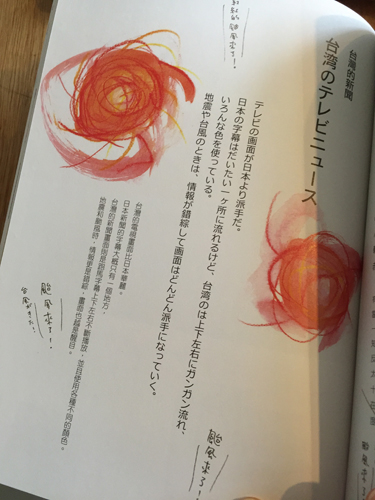 台灣的新聞
台湾のテレビニュース
テレビの画面が日本より派手だ。
日本の字幕はだいたい一ヶ所に流れるけど、台湾のは上下左右にガンガン流れ、
いろんな色を使っている。
地震や台風のときは、情報が錯綜して画面はどんどん派手になっていく。
台灣的電視畫面比日本華麗。
日本新聞的字幕大概只有一個地方，
台灣的新聞畫面則是跑馬字幕上下左右不斷播放，並且使用各種不同的顏色。
地震和颱風時，情報更是錯綜，畫面也越是醒目。
紅紅的颱風來了！
颱風來了！！
颱風來了！！
台風がきた！